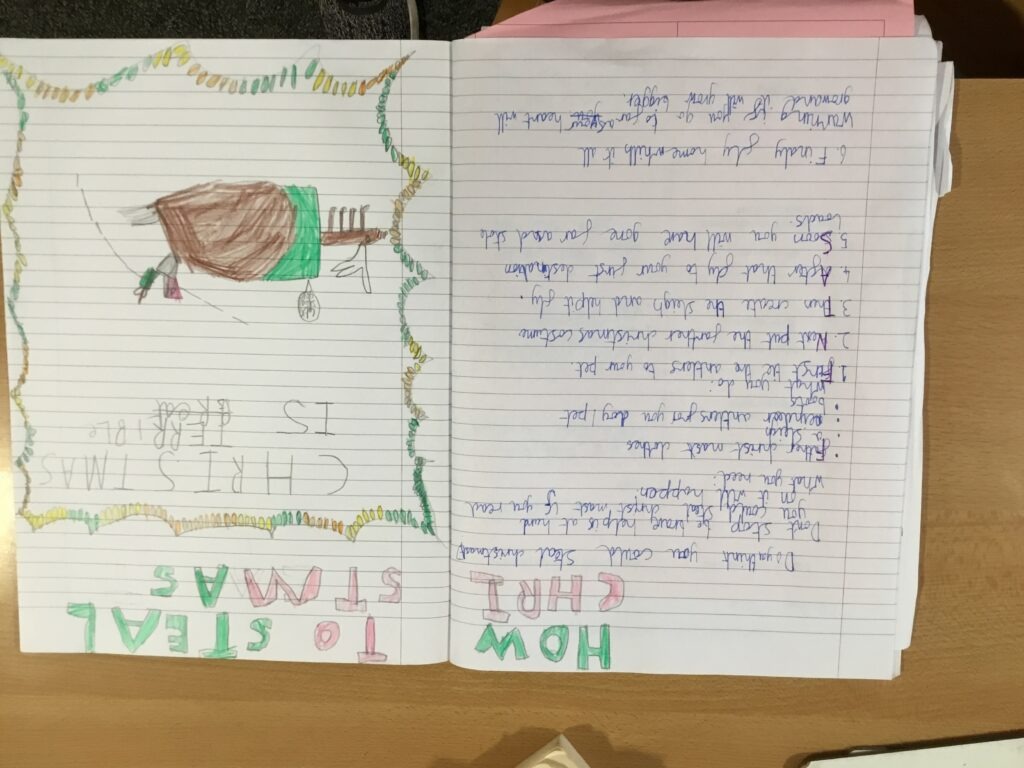 HOW TO STEAL
CHRI STMAS
Doyathinnt you could Steal christmast
Dont stop be brave help is at hand
you could steal christ mast if you read
on it will happen.
What you need:
• Father christ mast clothes
• a sleigh
• reindeer antlers for you dog/pet
• boots
What you do:
1. First tie the antlers to your pet.
2. Next put the farther christmas costume
3. Then create the sleigh and help it fly.
4. After that fly to your first destination
5. Soon you will have gone far and stole
loads.
6. Finaly fly home whith it all
Warning if you go to far your heart will
growand it will grow bigger.
CHRISTMAS
IS TERRIBLE